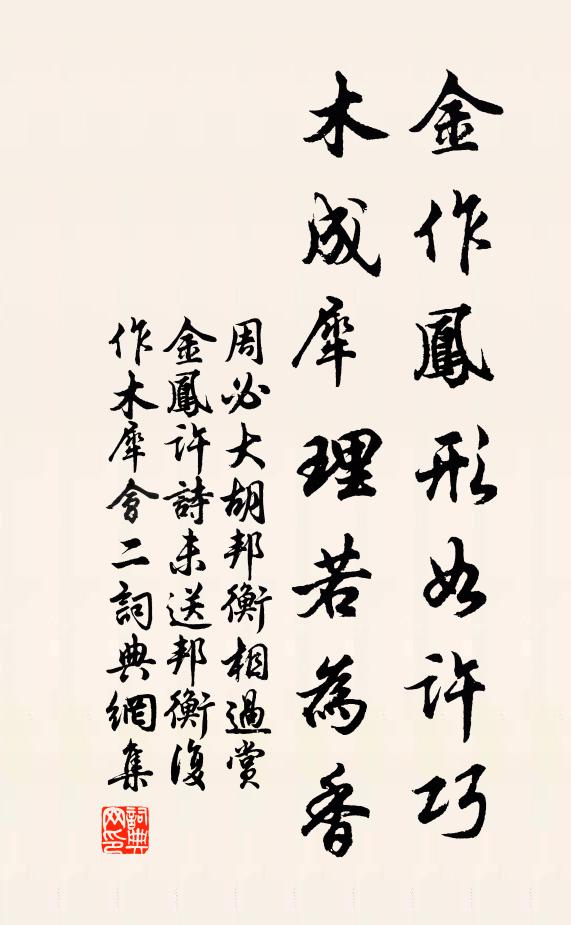 金作鳳形如許巧
木成犀理若為香
周必大胡邦衡相過賞
金鳳許詩未送邦衡復
作木犀會二詞典網集
詞典
网印